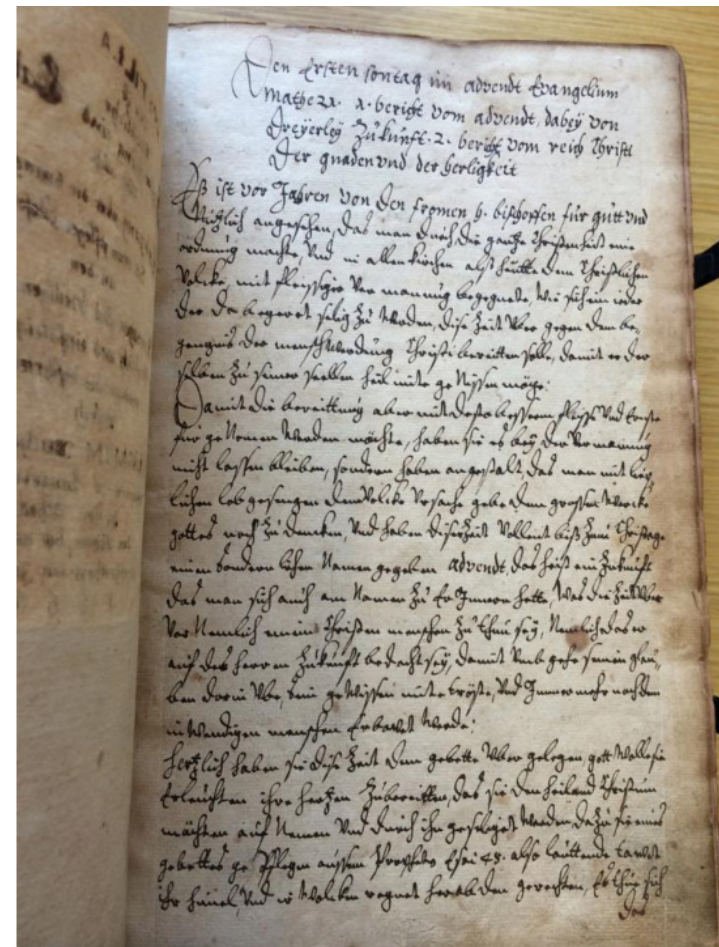 Den Ersten sontag im advendt Evangelium
Mathe 21. 1. bericht vom advendt, dabey von
Dreyerley Zukunft. 2. bericht vom reich Christi
Der gnaden vnd der herligkeit
Eß ist vor Jahren von den fromen h. bischoffen für gutt vnd
Nützlich angesehen, das man durch die gantze Christenheit eine
ordnung machte, Vnd in allen kirchen alß heutte dem Christlichen
Volcke, mit fleissiger Vermannung begegnete, Wie sich ein ieder
der da begeret selig zu Werden, dise Zeit Vber gegen dem be-
gengnis der menschwerdung Christi bereitten solle, damit er der
selben zu seiner seellen heil mite genissen möge:
Damit die bereittung aber mit desto besserem fleisse Vnd Ernste
für genomen Werden möchte, haben sie es bey der Vermannung
nicht lassen bleiben, sondern haben angestalt, das man mit
lichen lobgesengen dem Volcke Vrsache gebe dem grossen Wercke
gottes noch zu dencken, Vnd haben diser Zeit Vollent biß zum Christage
einen sonderlichen Namen gegeben advendt, das heist ein Zukunft
das man sich auch am Namen zu ErInnern hette, Was die Zeit Vber
Vor Nemlich einem Christen menschen zu thun sey, Nemlich das er
auf des herren Zukunft bedacht sey, damit Vmb gehe seinen glau-
ben darin Vbe, sein geWissen mite tröste, Vnd Immer mehr nach dem
inWendigen menschen Erbawet Werde:
Hertzlich haben sie dise Zeit dem gebette Vber gelegen, gott Wolle sie
Erleuchten ihre hertzen zubereitten, das sie den heiland Christum
möchten auf Nemen Vnd durch ihn geseliget Werden, dazu sie eines
gebettes gepflegen aussem Propheten Esai 45. also lauttende tawet
ihr himel, Vnd ir Wolcken regnet herab den gerechten, Es thue sich
das